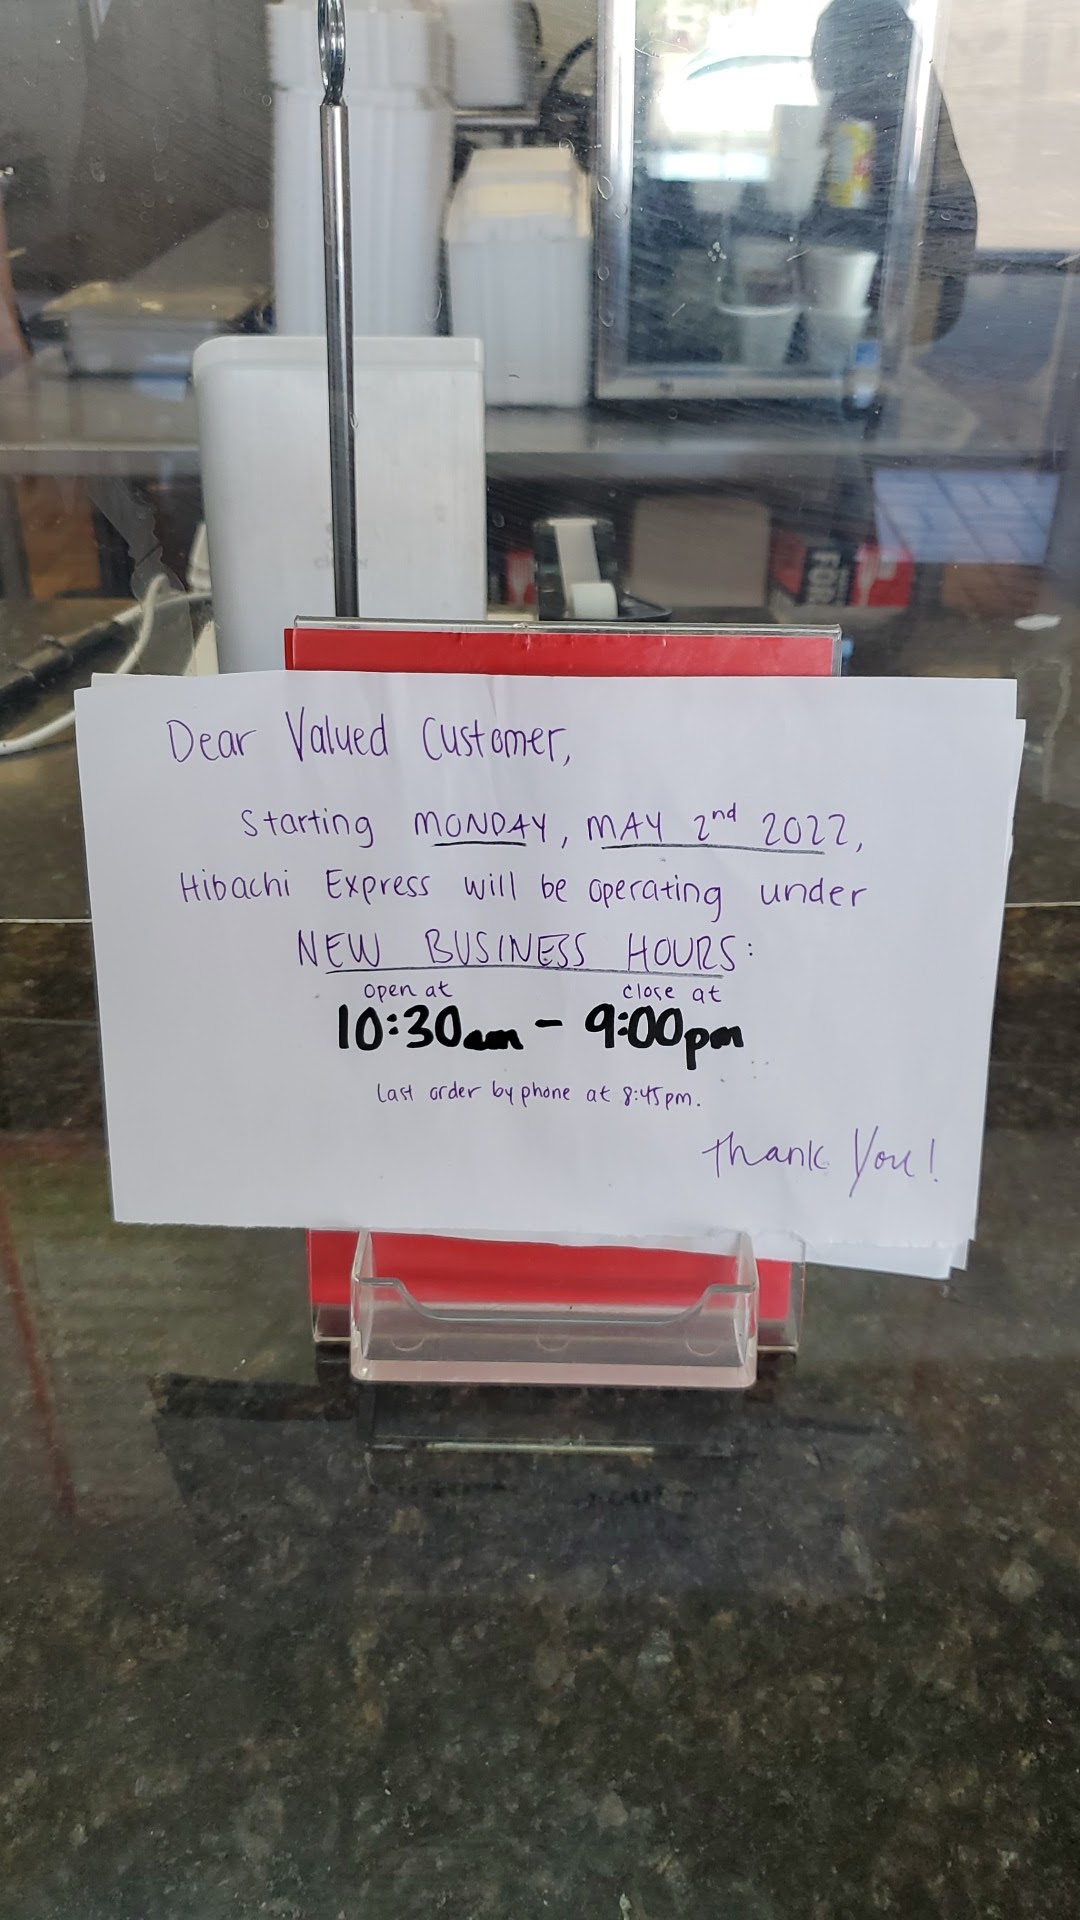 Dear Valued Customer,
Starting MONDAY, MAY 2nd 2022,
Hibachi Express will be operating under
NEW BUSINESS HOURS:
open at close at
10:30am - 9:00pm
Last order by phone at 8:45pm.
Thank You!
FOR
clover